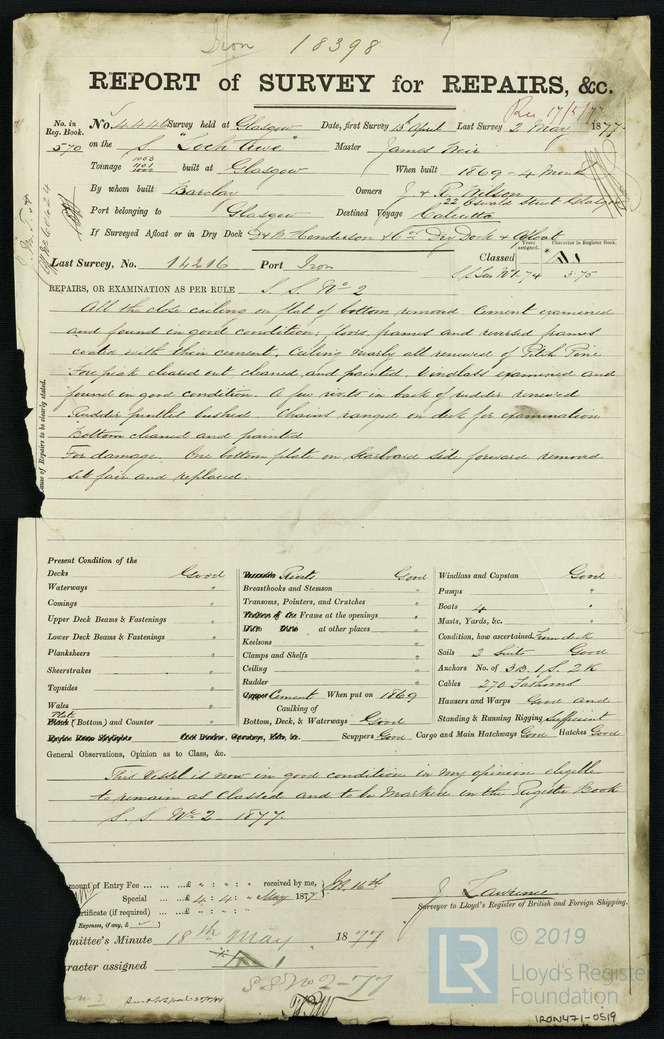 Iron 18398
REPORT of SURVEY for REPAIRS, &c.
Rec 17/5/77
No. in Reg. Book. No. 4446 Survey held at Glasgow Date, first Survey 13th April Last Survey 2 May 1877.
570 on the S. "Loch Awe" Master James Weir
Tonnage built at Glasgow When built 1869 - 4 Month
By whom built Barclay Owners J. & R. Wilson
22 Oswald Street Glasgow
Port belonging to Glasgow Destined Voyage Calcutta
If Surveyed Afloat or in Dry Dock D & W Henderson & Co's Dry Dock & Afloat
Years assigned. Character in Register Book.
Last Survey, No. 14216 Port Iron Classed * A1
3 75
REPAIRS, OR EXAMINATION AS PER RULE S. S. No 2
All the close ceiling on flat of bottom removed Cement examined
and found in good condition; floors, frames and reversed frames
coated with thin cement. Ceiling nearly all renewed of Pitch Pine
Fore peak cleared out cleaned, and painted. Windlass examined and
found in good condition. A few rivets in back of rudder renewed
Rudder pintles bushed Chains ranged on deck for examination
Bottom cleaned and painted
For damage. One bottom plate on starboard side forward removed
set fair and replaced.
ause of Repairs to be clearly stated.
Present Condition of the
Decks Good
Waterways "
Comings "
Upper Deck Beams & Fastenings "
Lower Deck Beams & Fastenings "
Planksheers "
Sheerstrakes "
Topsides "
Wales "
Plate (Bottom) and Counter "
Rivets Good
Breasthooks and Stemson "
Transoms, Pointers, and Crutches "
Frame at the openings "
at other places "
Keelsons "
Clamps and Shelfs "
Ceiling "
Rudder "
Cement When put on 1869
Caulking of
Bottom, Deck, & Waterways Good
Windlass and Capstan Good
Pumps "
Boats 4 "
Masts, Yards, &c. "
Condition, how ascertained From deck
Sails 2 Suits Good
Anchors No. of 3B. 1S. 2K
Cables 270 Fathoms
Hawsers and Warps Good and
Standing & Running Rigging Sufficient
Scuppers Good Cargo and Main Hatchways Good Hatches Good
General Observations, Opinion as to Class, &c.
This Vessel is now in good condition in my opinion eligible
to remain as Classed and to be Marked in the Register Book
S. S. No 2 - 1877.
mount of Entry Fee ... ... ...£ " : " : " received by me,
Special ... ...£ 4 : 4 : " May 1877 16th
rtificate (if required) ... ...£ " : " : "
Expenses, if any, £
J. Lawrence
Surveyor to Lloyd's Register of British and Foreign Shipping.
mmittee's Minute 18th May 1877
aracter assigned * A 1
S S No 2-77
LR © 2019
Lloyd's Register
Foundation
IRON471-0519